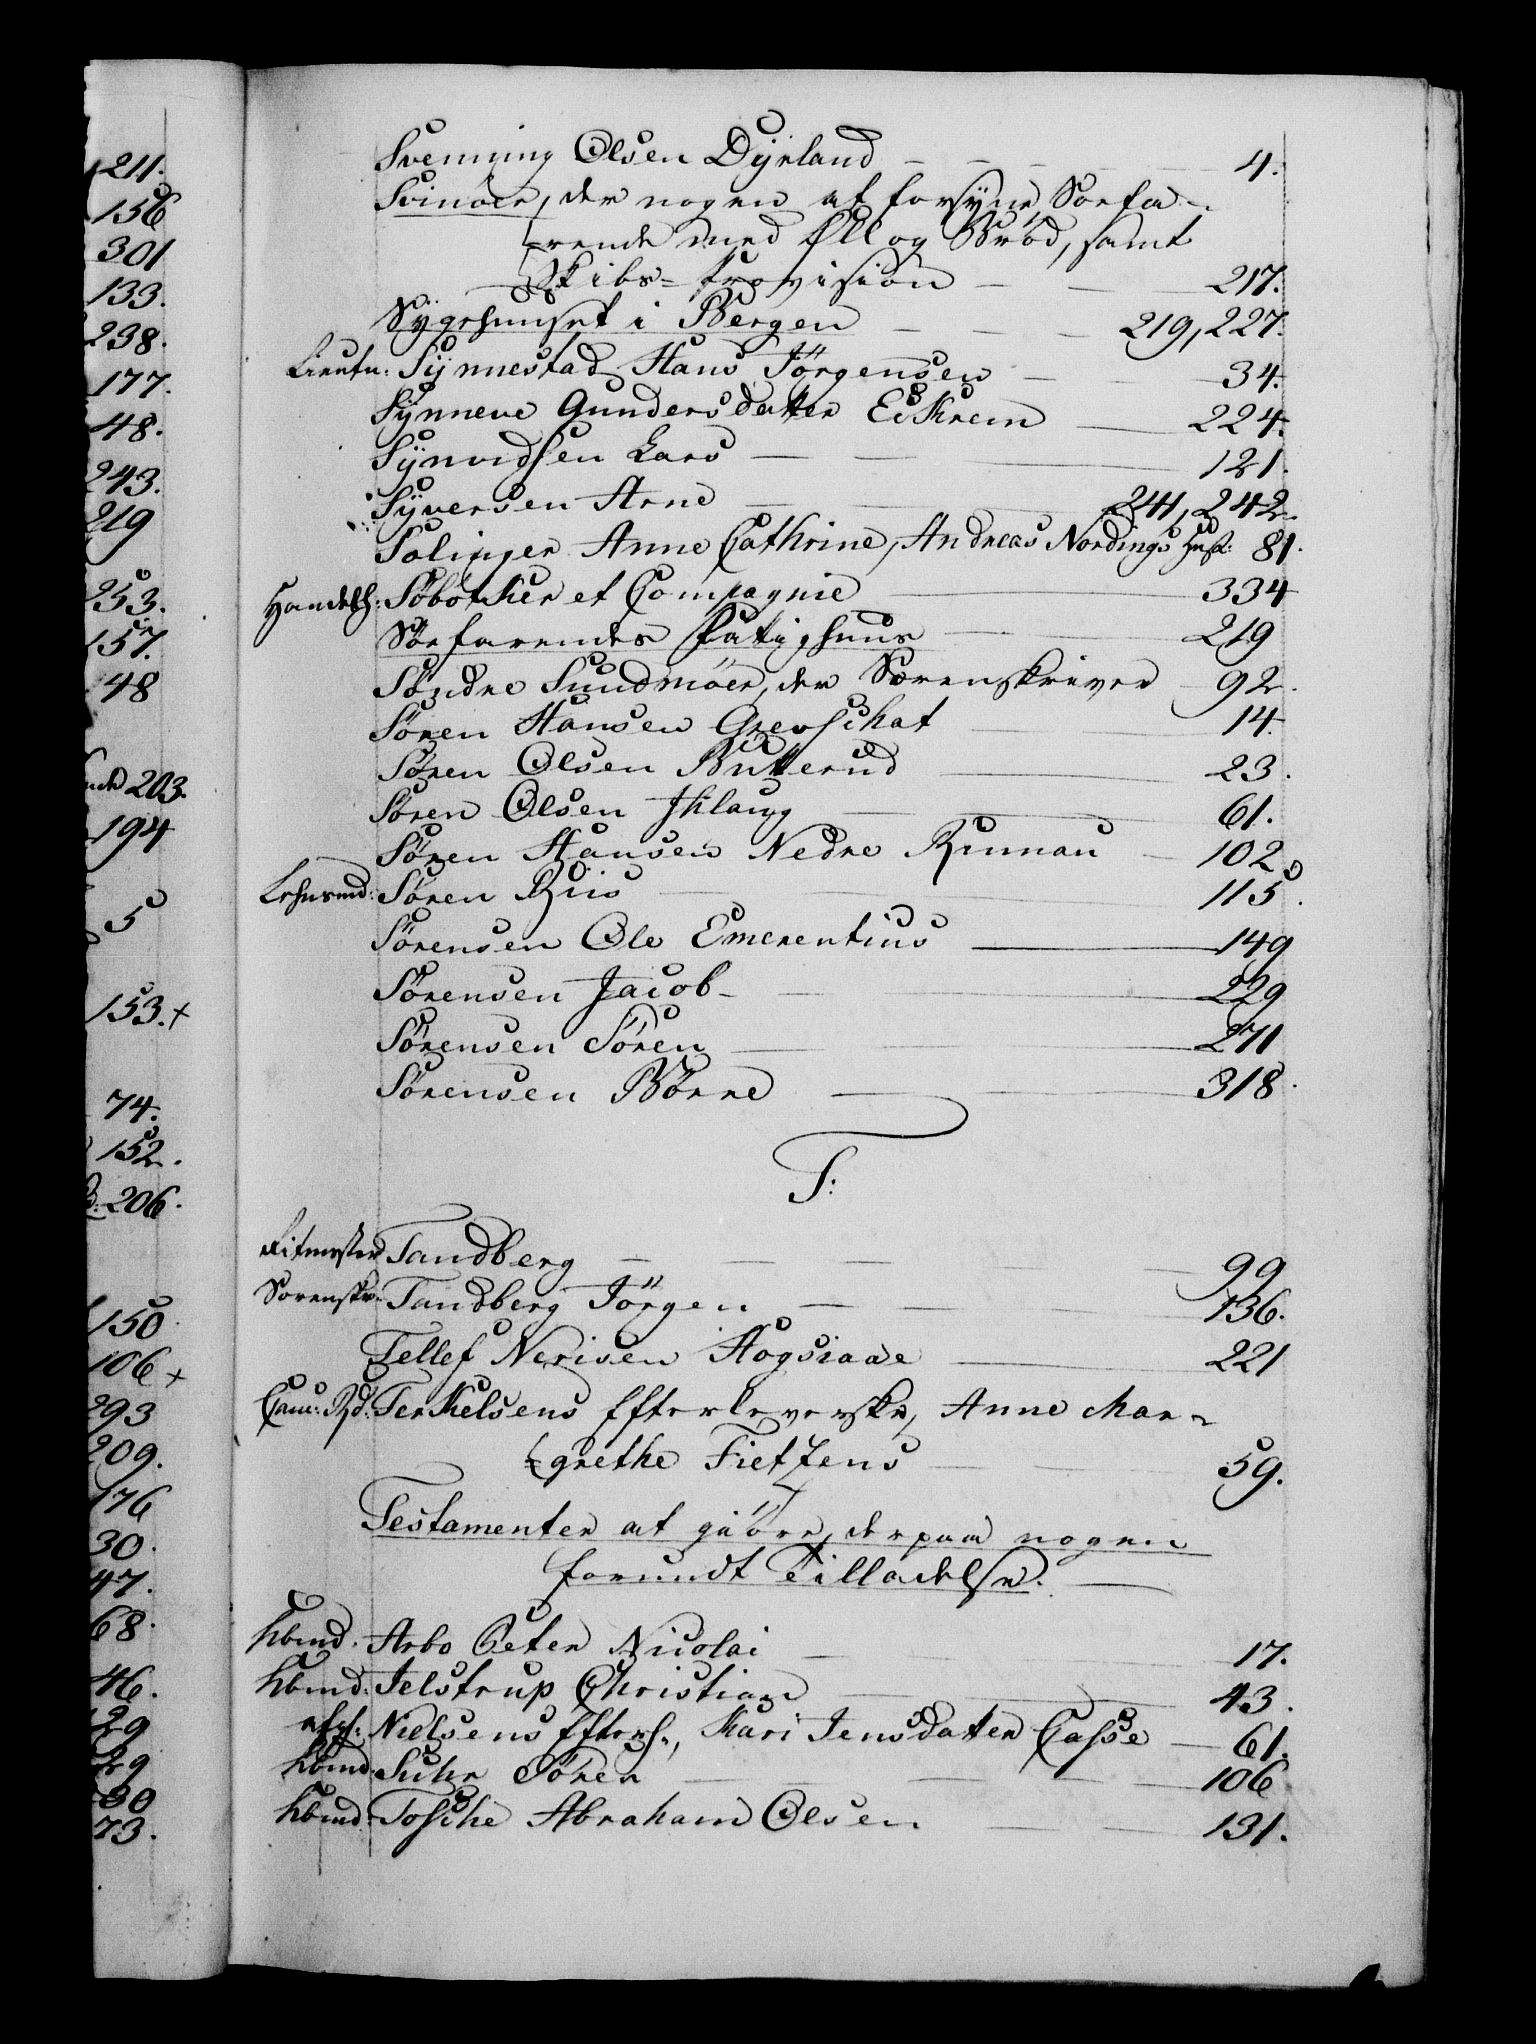 211.
156
301
133.
238.
177.
48.
243.
219
253.
157.
48
203.
194
5
153.+
74.
152.
206.
150
106 +
293
209.
176
30.
47.
68.
46.
29
29
30
73.
Svenning Olsen Dyrland - - - 4.
Svinöer, der nogen at forsyne Söefa-
rende med Øll og Bröd, samt
Skibs-Provision - - 217.
Sygehuuset i Bergen - - - 219, 227.
Lieutn: Synnestad Hans Jörgensen - - 34.
Synneve Gundersdatter Eskrem - 224.
Synvidsen Lars - - 121.
Syversen Arne - 241, 242.
Solinger Anne Cathrine, Andreas Nordings Hust: 81.
Handelsh: Söbötker et Compagnie - 334
Söefarendes Fatighuus - 219
Söndre Sundmöer, der Sorenskriver - 92.
Sören Hansen Grevschat - 14.
Sören Olsen Butterud - 23.
Sören Olsen Ihlang - 61.
Sören Hansen Nedre Rimnau - 102
Lehnsmd: Sören Riis - 115.
Sörensen Ole Emerentius - 149
Sörensen Jacob - 229
Sörensen Sören - 271
Sörensen Börre - 318.
T:
Ritmester Tandberg - 99
Sorenskr: Tandberg Jörgen - 136.
Tellef Nerisen Hogsiaae - 221
Canc: Rd: Terkelsens Efterleverske, Anne Mar-
grethe Tietzens - 59.
Testamenter at giöre, derpaa nogen
forundt Tilladelse. -
Kbmd. Arbo Peter Nicolai - 17.
Kbmd: Jelstrup Christian - 43.
afg: Nielsens Efterl:, Kari Jensdatter Casse - 61.
Kbmd: Suhr Sören - 106
Kbmd: Tosche Abraham Olsen - 131.